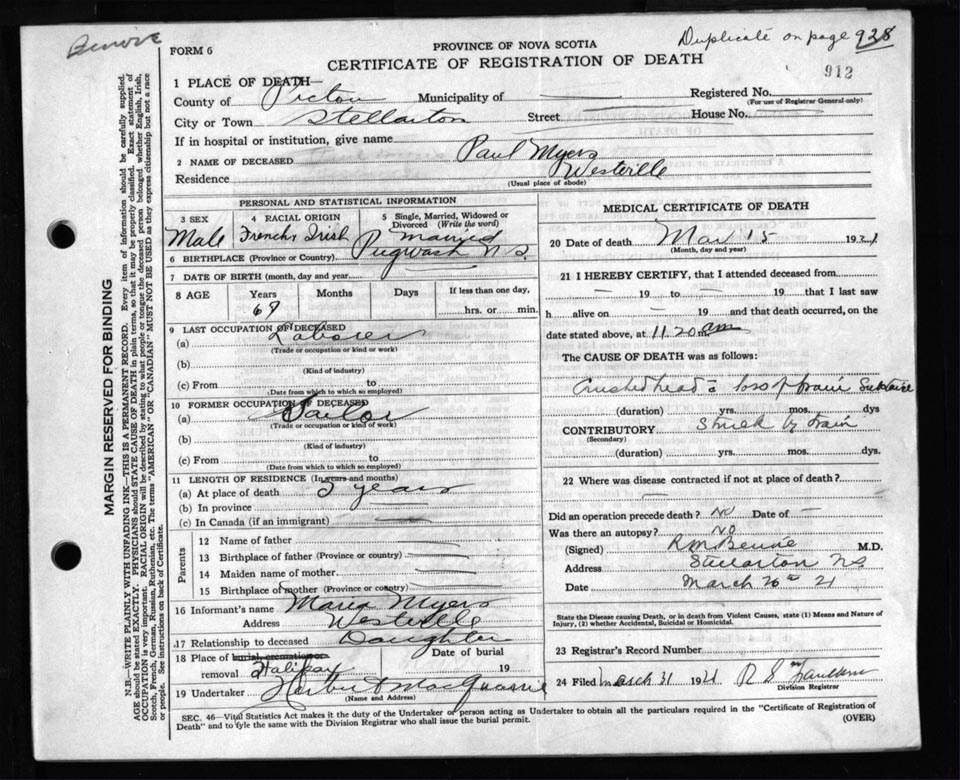 Duplicate on page 938
FORM 6
PROVINCE OF NOVA SCOTIA
CERTIFICATE OF REGISTRATION OF DEATH
912
1 PLACE OF DEATH—
County of Pictou Municipality of
Registered No.
(For use of Registrar General only)
City or Town Stellarton Street House No.
If in hospital or institution, give name
2 NAME OF DECEASED Paul Myers
Residence Westville
(Usual place of abode)
PERSONAL AND STATISTICAL INFORMATION
3 SEX Male
4 RACIAL ORIGIN French, Irish
5 Single, Married, Widowed or Divorced (Write the word) married
6 BIRTHPLACE (Province or Country) Pugwash N.S.
7 DATE OF BIRTH (month, day and year)
8 AGE Years Months Days If less than one day, hrs. or min.
9 LAST OCCUPATION OF DECEASED
(a) Laborer
(Trade or occupation or kind of work)
(b)
(Kind of industry)
(c) From to
(Date from which to which so employed)
10 FORMER OCCUPATION OF DECEASED
(a) Sailor
(Trade or occupation or kind of work)
(b)
(Kind of industry)
(c) From to
(Date from which to which so employed)
11 LENGTH OF RESIDENCE (In years and months)
(a) At place of death years
(b) In province
(c) In Canada (if an immigrant)
Parents
12 Name of father
13 Birthplace of father (Province or country)
14 Maiden name of mother
15 Birthplace of mother (Province or country)
16 Informant's name Maria Myers
Address Westville
17 Relationship to deceased Daughter
18 Place of burial, cremation or removal Halifax
Date of burial 19
19 Undertaker Herbert MacQuarrie
(Name and Address)
MEDICAL CERTIFICATE OF DEATH
20 Date of death Mar 15 1921
(Month, day and year)
21 I HEREBY CERTIFY, that I attended deceased from
— 19 to — 19 that I last saw
h alive on — 19 and that death occurred, on the
date stated above, at 11.20 am
The CAUSE OF DEATH was as follows:
Crushed head loss of brain
(duration) yrs. mos. dys
CONTRIBUTORY Struck by train
(Secondary)
(duration) yrs. mos. dys.
22 Where was disease contracted if not at place of death?
—
Did an operation precede death? No Date of —
Was there an autopsy? No
(Signed) M.D.
Address Stellarton NS
Date March 21
State the Disease causing Death, or in death from Violent Causes, state (1) Means and Nature of
Injury, (2) whether Accidental, Suicidal or Homicidal.
23 Registrar's Record Number
24 Filed March 31 1921
Division Registrar
SEC. 46—Vital Statistics Act makes it the duty of the Undertaker or person acting as Undertaker to obtain all the particulars required in the "Certificate of Registration of
Death" and to file the same with the Division Registrar who shall issue the burial permit.
(OVER)
MARGIN RESERVED FOR BINDING
N.B.—WRITE PLAINLY WITH UNFADING INK—THIS IS A PERMANENT RECORD. Every item of information should be carefully supplied.
AGE should be stated EXACTLY. PHYSICIANS should STATE CAUSE OF DEATH in plain terms, so that it may be properly classified. Exact statement of
OCCUPATION is very important. RACIAL ORIGIN will be described by stating to what people or tongue the deceased person belonged whether English, Irish,
Scotch, French, German, Russian, Ruthenian, etc. The terms "AMERICAN" or "CANADIAN" MUST NOT BE USED as they express citizenship but not a race
or people. See instructions on back of Certificate.